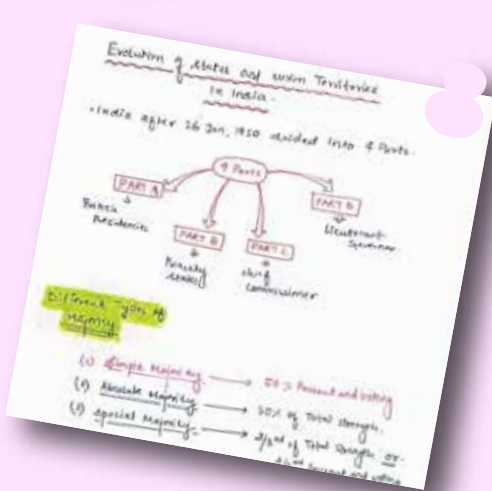 Evolution of states and union Territories
in India.
• India after 26 Jan, 1950 divided into 4 Parts.
4 Parts
PART A
PART B
PART C
PART D
British
Presidencies
Princely
States
chief
Commissioner
Lieutenant
Governor
Different Types of
Majority
(1) Simple Majority → 50% Present and voting
(2) Absolute Majority → 50% of Total strength.
(3) Special Majority → 2/3rd of Total Strength or
2/3rd present and voting